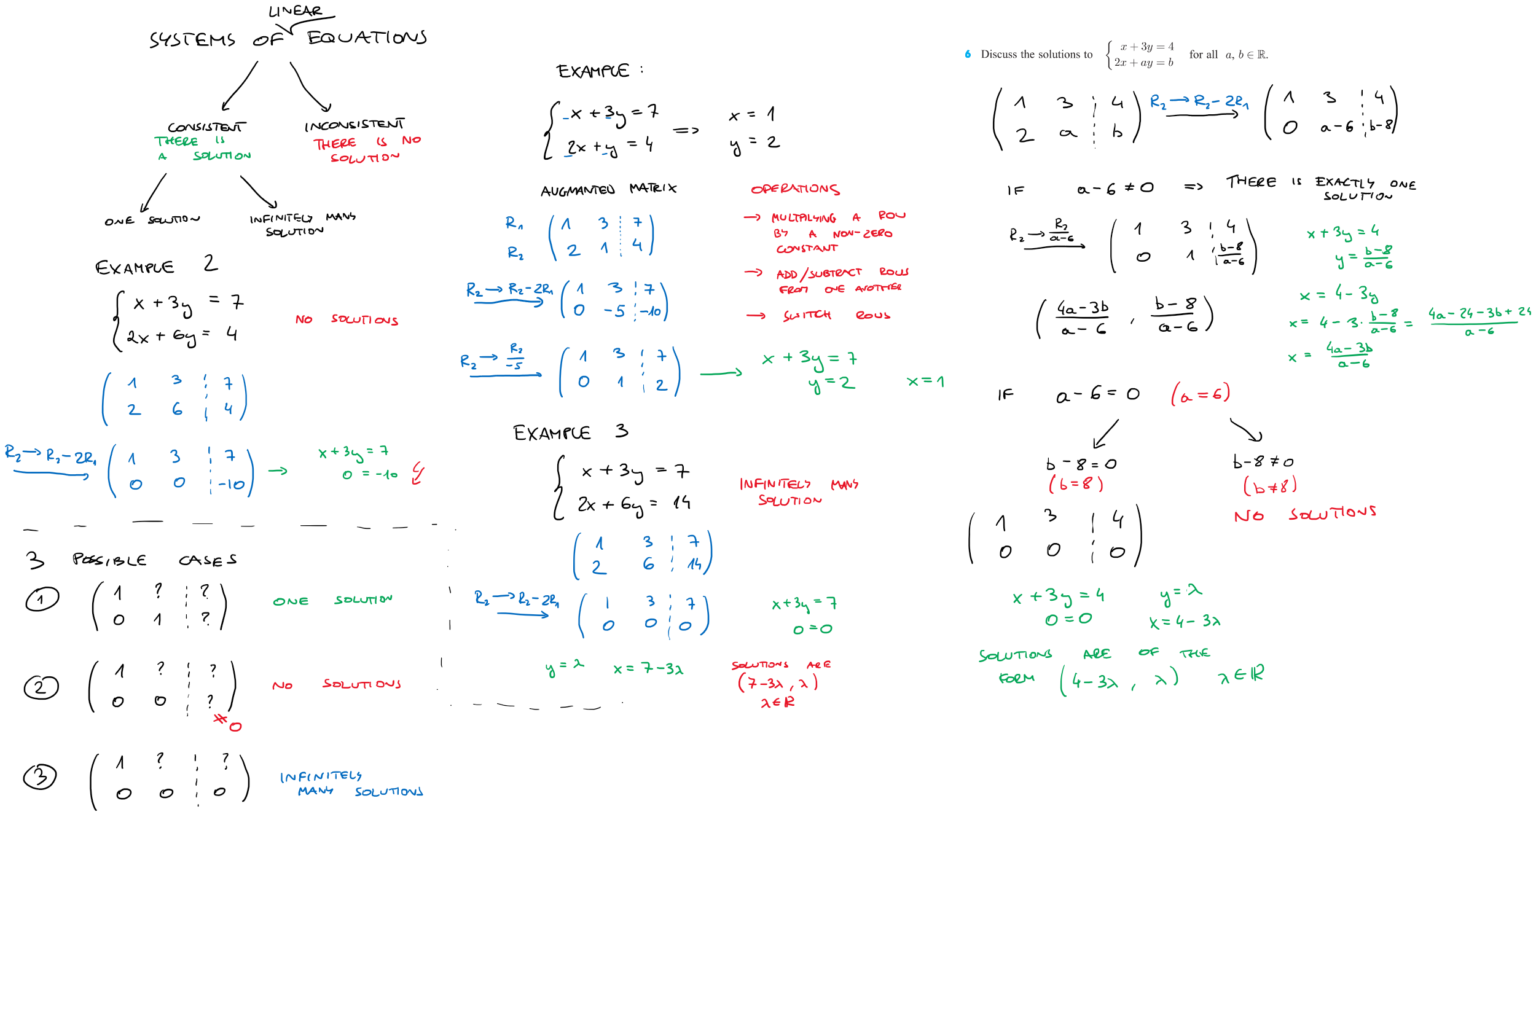 LINEAR
SYSTEMS OF EQUATIONS
CONSISTENT
THERE IS
A SOLUTION
INCONSISTENT
THERE IS NO
SOLUTION
ONE SOLUTION
INFINITELY MANY
SOLUTION
EXAMPLE 2
x + 3y = 7
2x + 6y = 4
NO SOLUTIONS
1 3 7
2 6 4
R₂ → R₂ - 2R₁
1 3 7
0 0 -10
x + 3y = 7
0 = -10
3 POSSIBLE CASES
1
1 ? ?
0 1 ?
ONE SOLUTION
2
1 ? ?
0 0 ?
≠ 0
NO SOLUTIONS
3
1 ? ?
0 0 0
INFINITELY
MANY SOLUTIONS
EXAMPLE :
x + 3y = 7
2x + y = 4
=>
x = 1
y = 2
AUGMANTED MATRIX
R₁ 1 3 7
R₂ 2 1 4
R₂ → R₂ - 2R₁
1 3 7
0 -5 -10
R₂ → R₂/-5
1 3 7
0 1 2
x + 3y = 7
y = 2 x = 1
OPERATIONS
→ MULTIPLYING A ROW
BY A NON-ZERO
CONSTANT
→ ADD/SUBTRACT ROWS
FROM ONE ANOTHER
→ SWITCH ROWS
EXAMPLE 3
x + 3y = 7
2x + 6y = 14
INFINITELY MANY
SOLUTION
1 3 7
2 6 14
R₂ → R₂ - 2R₁
1 3 7
0 0 0
x + 3y = 7
0 = 0
y = λ x = 7 - 3λ
SOLUTIONS ARE
(7 - 3λ , λ)
λ ∈ ℝ
6 Discuss the solutions to { x + 3y = 4
2x + ay = b for all a, b ∈ ℝ.
1 3 4
2 a b
R₂ → R₂ - 2R₁
1 3 4
0 a-6 b-8
IF a - 6 ≠ 0 => THERE IS EXACTLY ONE
SOLUTION
R₂ → R₂/(a-6)
1 3 4
0 1 (b-8)/(a-6)
x + 3y = 4
y = (b-8)/(a-6)
x = 4 - 3y
x = 4 - 3 · (b-8)/(a-6) = (4a - 24 - 3b + 24)/(a-6)
x = (4a - 3b)/(a-6)
( (4a - 3b)/(a-6) , (b-8)/(a-6) )
IF a - 6 = 0 (a = 6)
b - 8 = 0
(b = 8)
b - 8 ≠ 0
(b ≠ 8)
NO SOLUTIONS
1 3 4
0 0 0
x + 3y = 4
0 = 0
y = λ
x = 4 - 3λ
SOLUTIONS ARE OF THE
FORM (4 - 3λ , λ) λ ∈ ℝ